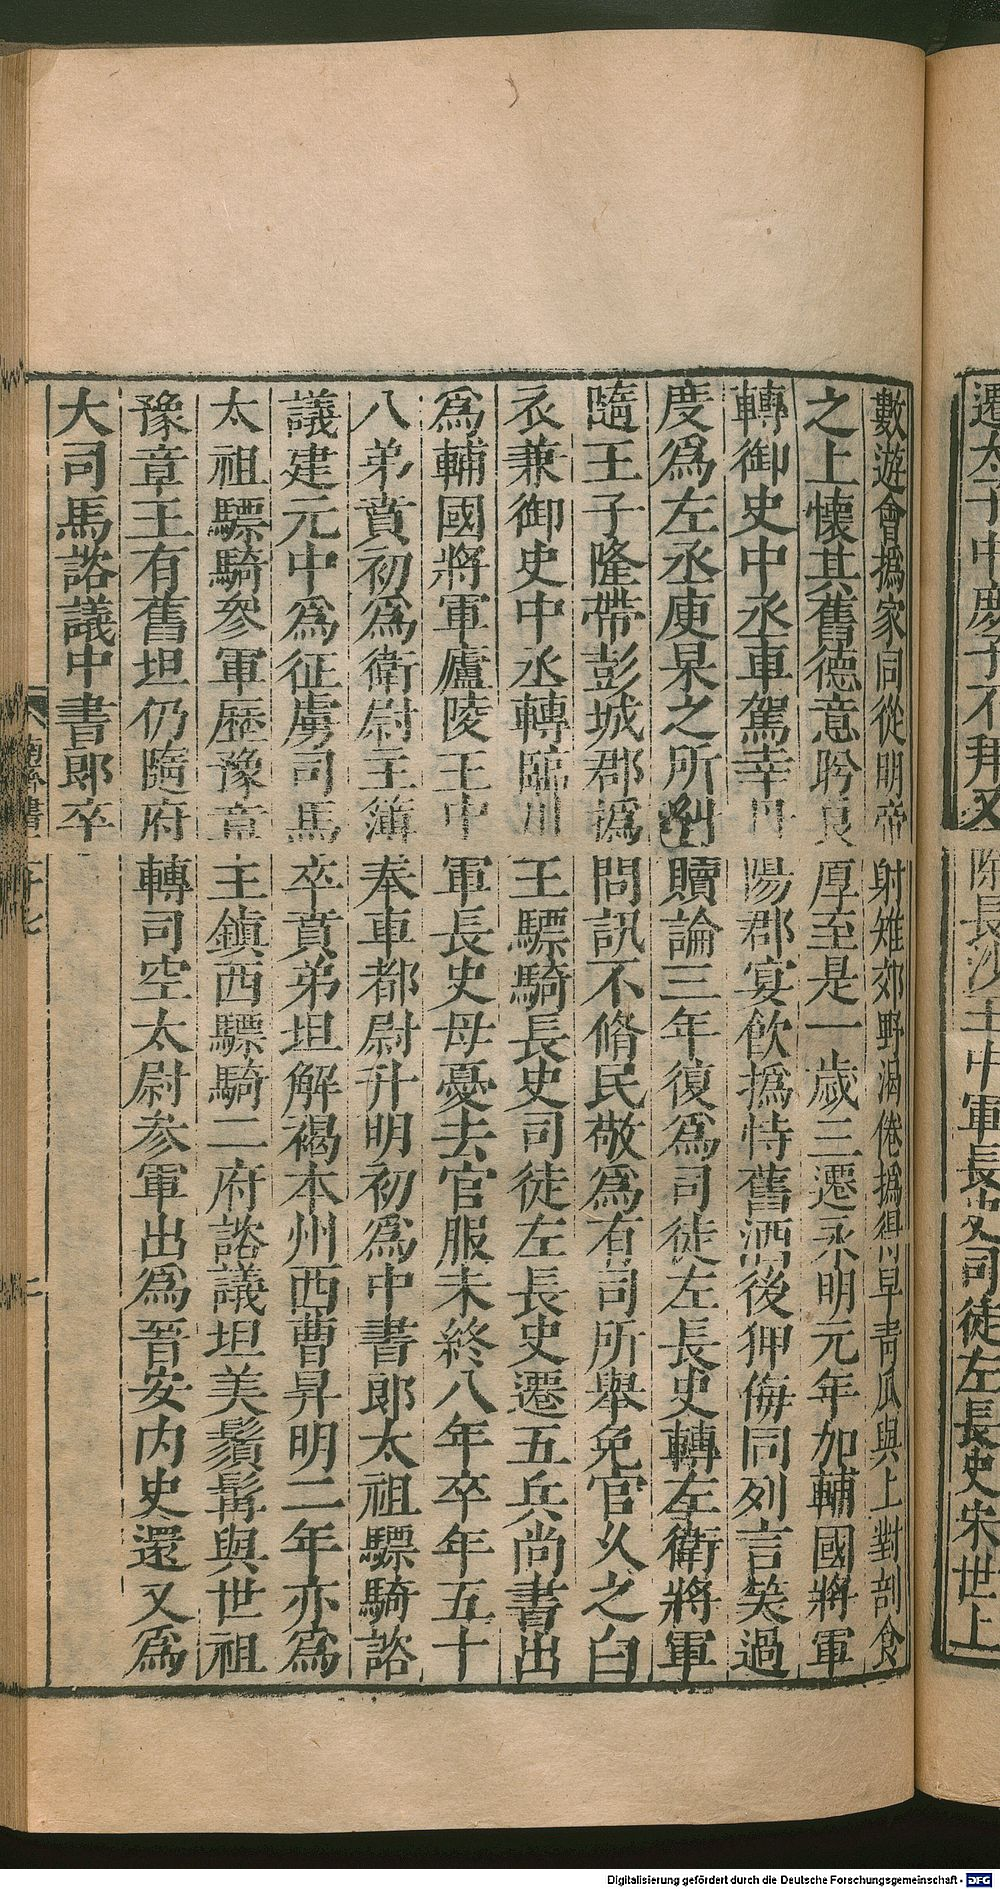 遷太子中庶子不拜又除長沙王中軍長史司徒左長史宋世上
數遊會撝家同從明帝射雉郊野渴倦撝得早青瓜與上對剖食
之上懷其舊德意眄良厚至是一歲三遷永明元年加輔國將軍
轉御史中丞車駕幸丹陽郡宴飲撝恃舊酒後狎侮同列言笑過
度爲左丞庾杲之所糾贖論三年復爲司徒左長史轉左衛將軍
隨王子隆帶彭城郡撝問訊不脩民敬爲有司所舉免官久之白
衣兼御史中丞轉臨川王驃騎長史司徒左長史遷五兵尚書出
爲輔國將軍廬陵王中軍長史母憂去官服未終八年卒年五十
八弟賁初爲衛尉主簿奉車都尉升明初爲中書郎太祖驃騎諮
議建元中爲征虜司馬卒賁弟坦解褐本州西曹昇明二年亦爲
太祖驃騎參軍歷豫章王鎮西驃騎二府諮議坦美鬚髯與世祖
豫章王有舊坦仍隨府轉司空太尉參軍出爲晉安內史還又爲
大司馬諮議中書郎卒
南齊書
Digitalisierung gefördert durch die Deutsche Forschungsgemeinschaft - DFG